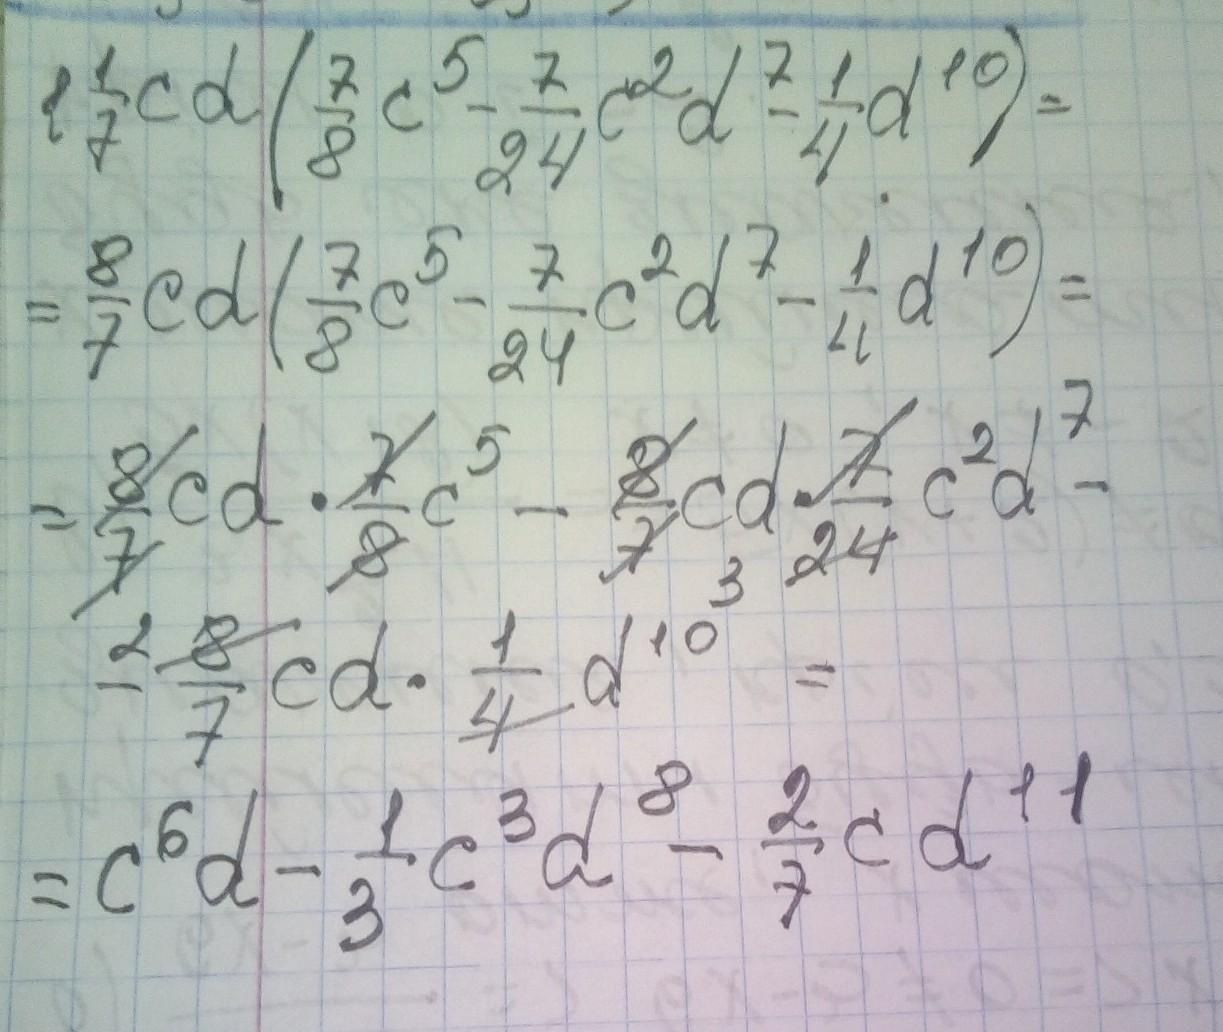 1 1/7 cd (7/8 c^5 - 7/24 c^2 d^7 - 1/4 d^10) =
= 8/7 cd (7/8 c^5 - 7/24 c^2 d^7 - 1/4 d^10) =
= 8/7 cd · 7/8 c^5 - 8/7 cd · 7/24 c^2 d^7 -
3
- 2 8/7 cd · 1/4 d^10 =
= c^6 d - 1/3 c^3 d^8 - 2/7 cd^11